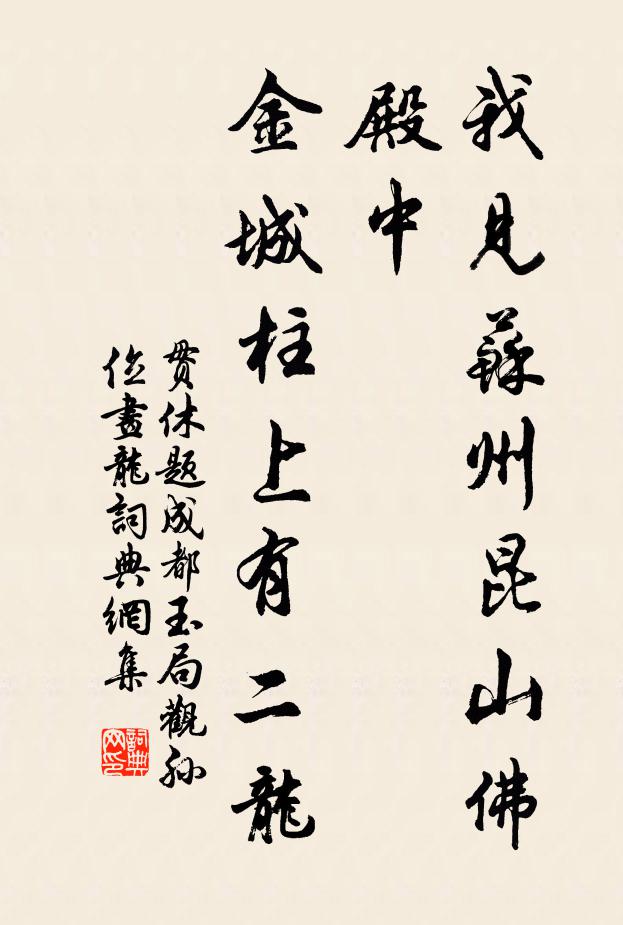 我見蘇州昆山佛
殿中
金城柱上有二龍
貫休題成都玉局觀孫
位畫龍詞典網集
詞典
网印